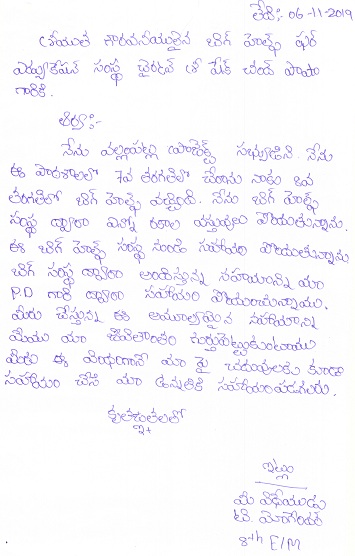 తేది:- 06-11-2019
శ్రీయుత గౌరవనీయులైన బిగ్ హెల్ప్ ఫర్
ఎడ్యుకేషన్ సంస్థ చైర్మన్ శ్రీ చాంద్ పాషా
గారికి.
ఆర్యా:-
నేను వల్లాపల్లి ప్రాజెక్ట్ సభ్యుడిని. నేను
ఈ పాఠశాలలో 7వ తరగతిలో చేరాను నాకు 8వ
తరగతిలో బిగ్ హెల్ప్ వచ్చింది. నేను బిగ్ హెల్ప్
సంస్థ ద్వారా ఎన్నో రకాల వస్తువులు పొందుతున్నాను.
ఈ బిగ్ హెల్ప్ సంస్థ నుండి సహాయం పొందుతున్నాను
బిగ్ సంస్థ ద్వారా అందిస్తున్న సహాయాన్ని మా
P.D గారి ద్వారా సహాయం పొందుచున్నాము.
మీరు చేస్తున్న ఈ అమూల్యమైన సహాయాన్ని
మేము మా జీవితాంతం గుర్తుపెట్టుకుంటాము
మీరు ఈ విధంగానే మా పై చదువులకు కూడా
సహాయం చేసి మా ఉన్నతికి సహాయపడగలరు.
కృతజ్ఞతలతో
ఇట్లు
మీ విధేయుడు
టి.
8th E/M